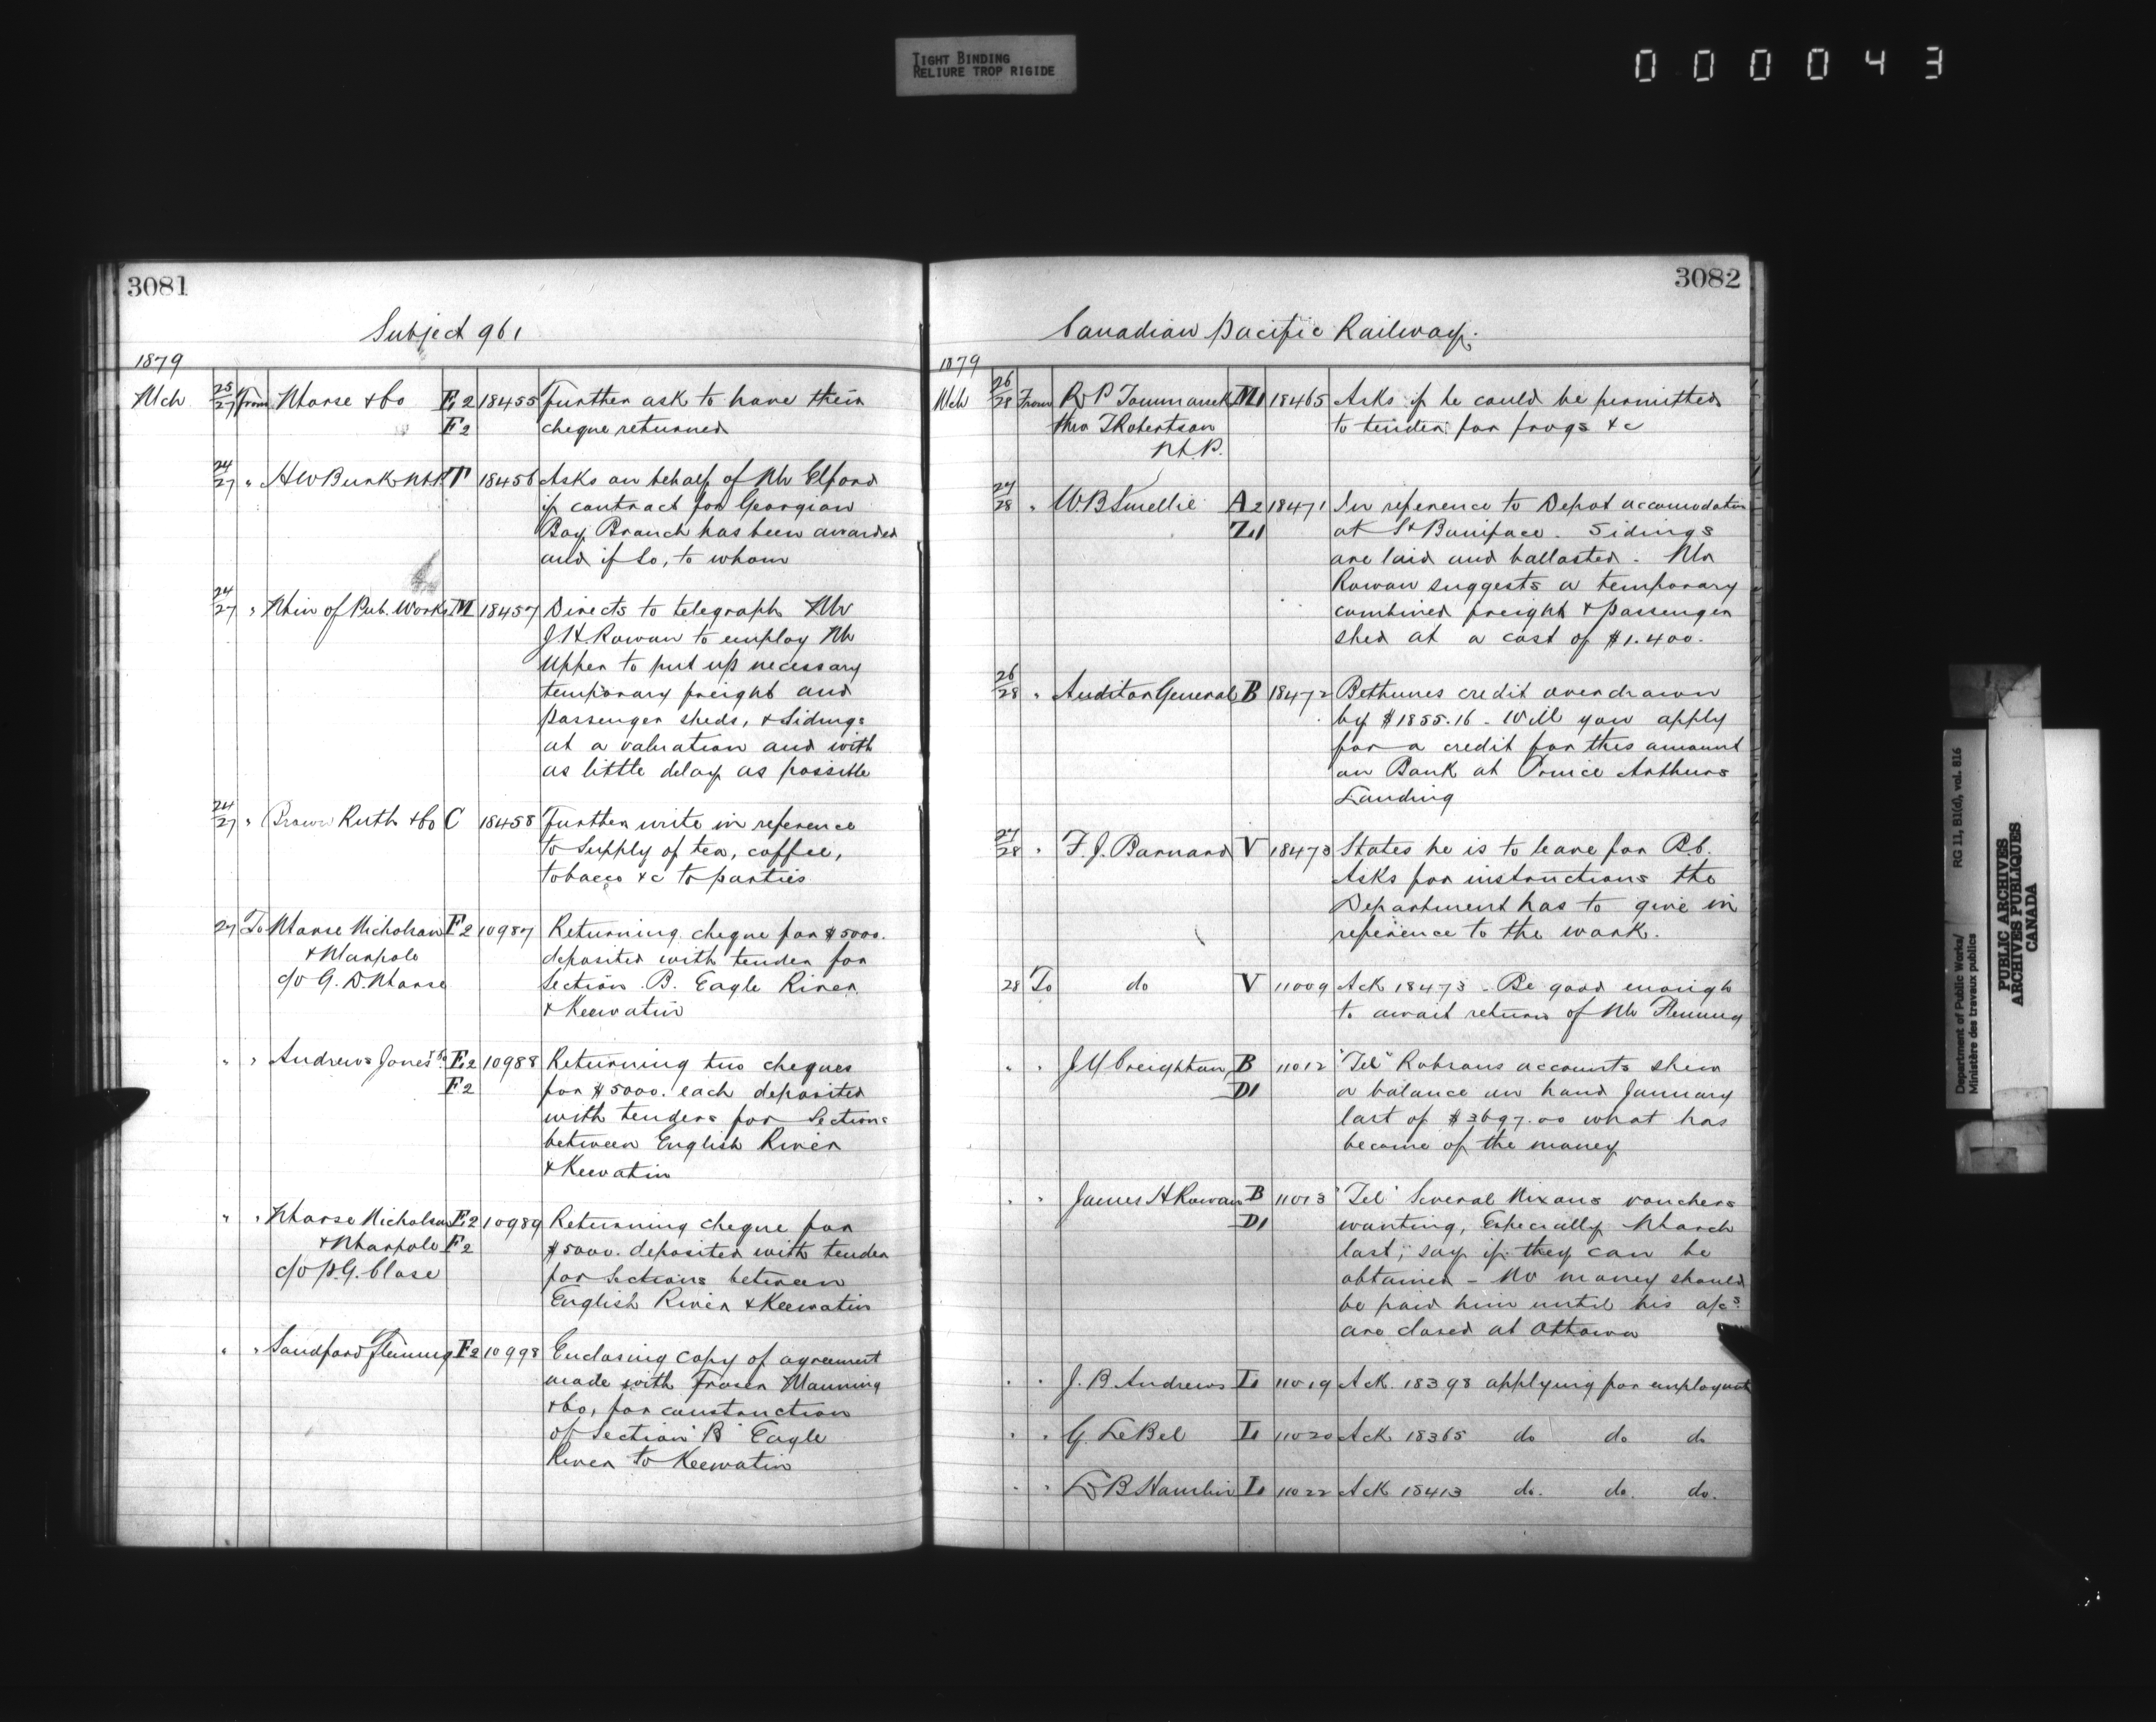 TIGHT BINDING
RELIURE TROP RIGIDE
000043
3081
Subject 961
1879
Mch 25/27 From Morse & Co E2 18455 Further ask to have their
F2 cheque returned
24/27 " H W Burk M.P. T 18456 Asks on behalf of Mr Elford
if contract for Georgian
Bay Branch has been awarded
and if so, to whom
24/27 " Min of Pub. Works M 18457 Directs to telegraph Mr
J.H. Rowan to employ Mr
Upper to put up necessary
temporary freight and
passenger sheds, & sidings
at a valuation and with
as little delay as possible
24/27 " Brown Ruth & Co C 18458 Further write in reference
to supply of tea, coffee,
tobacco &c to parties
27 To Morse Nicholson F2 10987 Returning cheque for $5000.
& Marpole deposited with tender for
c/o G. D. Morse Section B. Eagle River
& Keewatin
" " Andrews Jones & Co. E2 10988 Returning two cheques
F2 for $5000. each deposited
with tenders for Sections
between English River
& Keewatin
" " Morse Nicholson E2 10989 Returning cheque for
& Marpole F2 $5000. deposited with tender
c/o P.G. Close for Sections between
English River & Keewatin
" " Sandford Fleming F2 10998 Enclosing copy of agreement
made with Fraser Manning
& Co, for construction
of Section "B" Eagle
River to Keewatin
3082
Canadian Pacific Railway.
1879
Mch 26/28 From R P M1 18465 Asks if he could be permitted
thro T Robertson to tender for frogs &c
M.P.
27/28 " W.B Smellie A2 18471 In reference to Depot accomodation
Z1 at St Boniface. Sidings
are laid and ballasted. Mr
Rowan suggests a temporary
combined freight & passenger
shed at a cost of $1.400.
26/28 " Auditor General B 18472 Bethunes credit overdrawn
by $1855.16 - Will you apply
for a credit for this amount
on Bank at Prince Arthurs
Landing
27/28 " F. J. Barnard V 18473 States he is to leave for B.C.
Asks for instructions the
Department has to give in
reference to the work.
28 To do V 11009 Ack 18473 - Be good enough
to await return of Mr Fleming
" " J Y Creighton B 11012 "Tel" Robsons accounts shew
D1 a balance on hand January
last of $3697.00 what has
become of the money
" " James H Rowan B 11013 "Tel" Several Nixons vouchers
D1 wanting, Especially March
last, say if they can be
obtained - No money should
be paid him until his a/cs
are closed at Ottawa
" " J. B Andrews I1 11019 Ack. 18398 applying for employment
" " G. LeBel I1 11020 Ack 18365 do do do
" " L B Hamlin I1 11022 Ack 18413 do. do. do.
Department of Public Works/
Ministère des travaux publics
RG 11, B1(d), vol. 816
PUBLIC ARCHIVES
ARCHIVES PUBLIQUES
CANADA